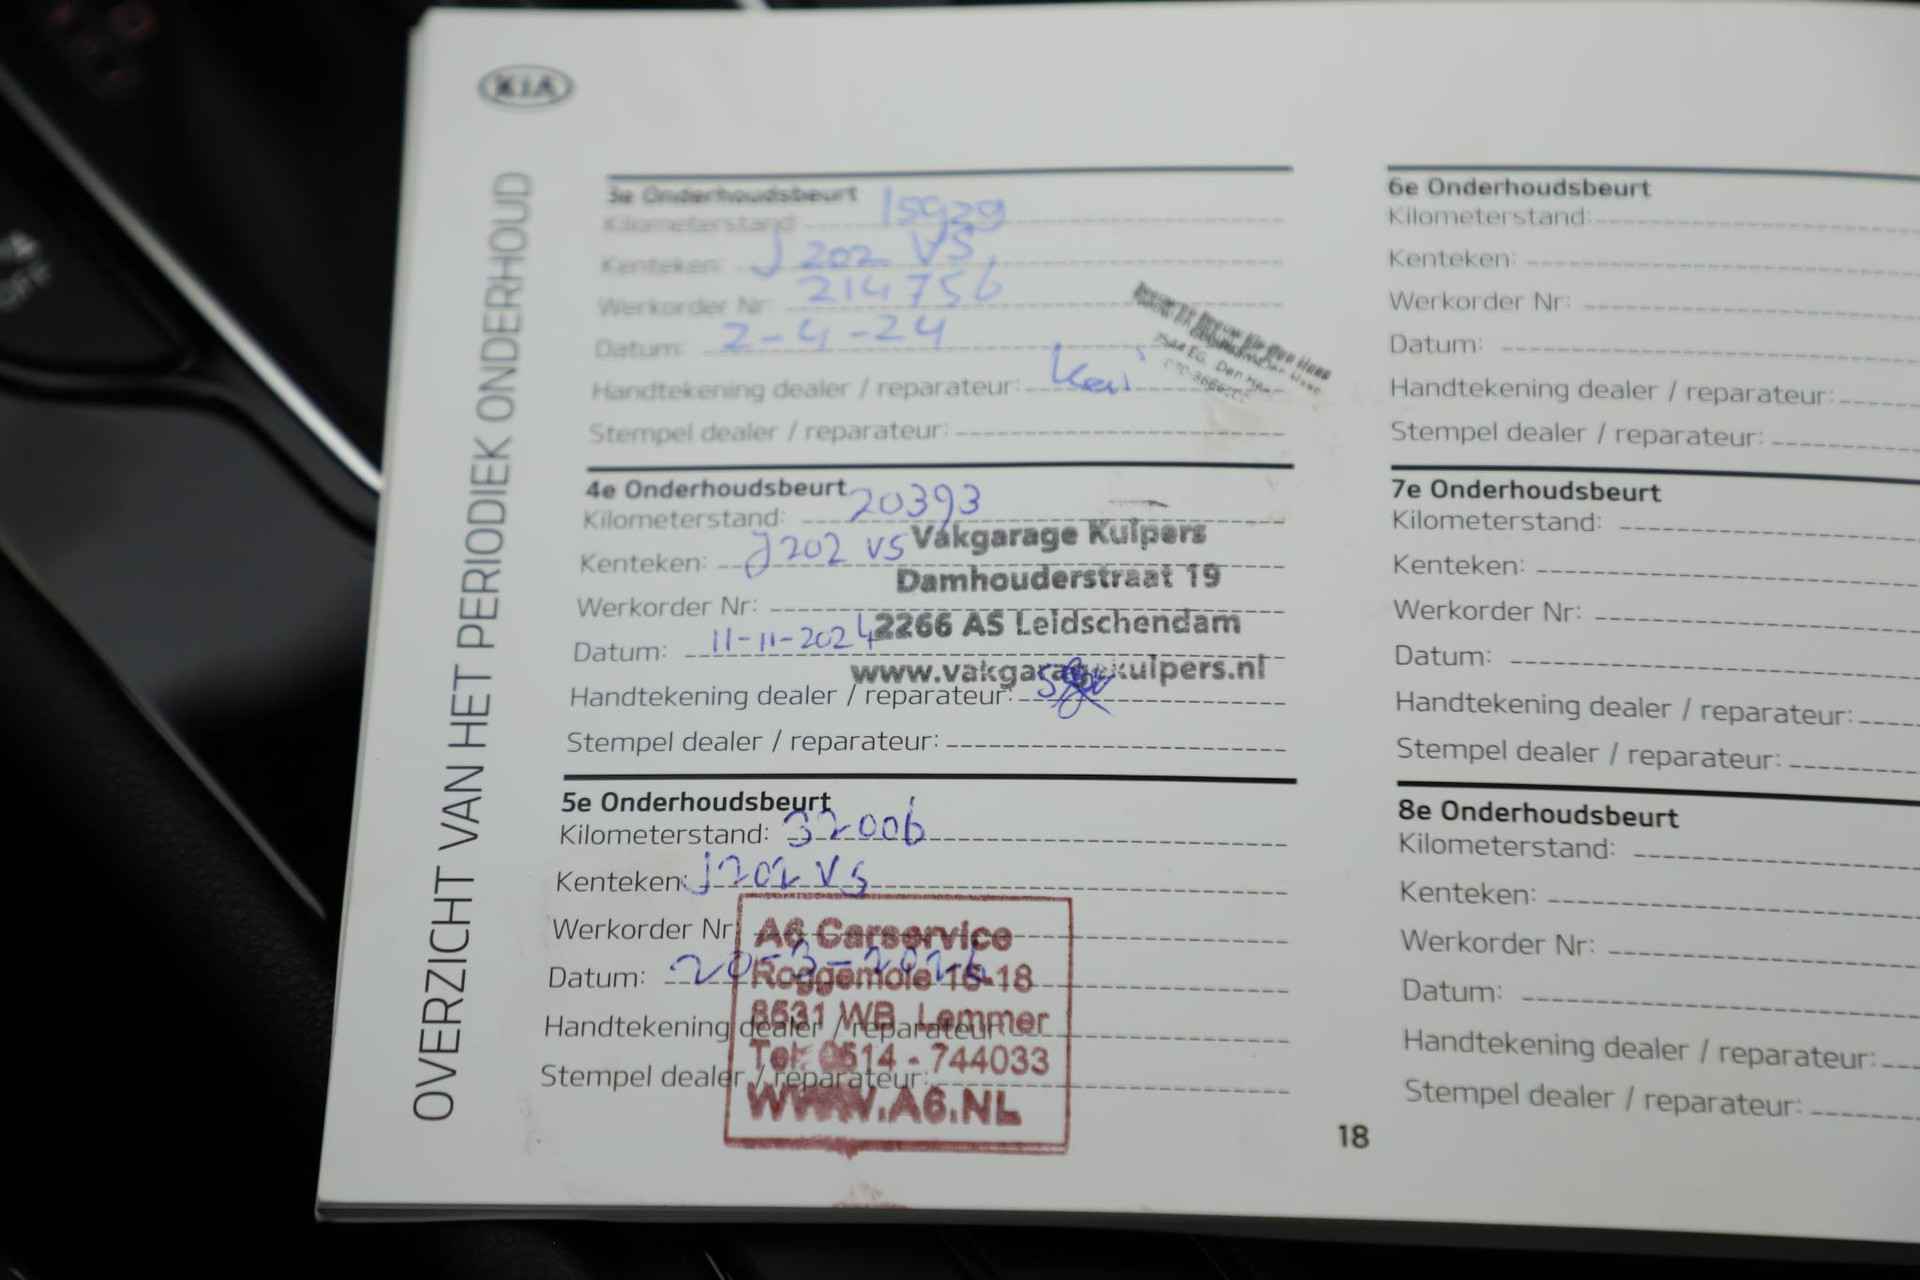 KIA
OVERZICHT VAN HET PERIODIEK ONDERHOUD
3e Onderhoudsbeurt
Kilometerstand: 15929
Kenteken: J 202 VS
Werkorder Nr: 214756
Datum: 2-4-24
Handtekening dealer / reparateur:
Stempel dealer / reparateur:
4e Onderhoudsbeurt
Kilometerstand: 20393
Kenteken: J202 VS
Werkorder Nr:
Datum: 11-11-2024
Handtekening dealer / reparateur:
Stempel dealer / reparateur:
Vakgarage Kuipers
Damhouderstraat 19
2266 AS Leidschendam
www.vakgaragekuipers.nl
5e Onderhoudsbeurt
Kilometerstand: 32006
Kenteken: J202 VS
Werkorder Nr:
Datum: 20-3-2026
Handtekening dealer / reparateur
Stempel dealer / reparateur:
A6 Carservice
Roggemole 16-18
8531 WB Lemmer
Tel: 0514 - 744033
WWW.A6.NL
6e Onderhoudsbeurt
Kilometerstand:
Kenteken:
Werkorder Nr:
Datum:
Handtekening dealer / reparateur:
Stempel dealer / reparateur:
7e Onderhoudsbeurt
Kilometerstand:
Kenteken:
Werkorder Nr:
Datum:
Handtekening dealer / reparateur:
Stempel dealer / reparateur:
8e Onderhoudsbeurt
Kilometerstand:
Kenteken:
Werkorder Nr:
Datum:
Handtekening dealer / reparateur:
Stempel dealer / reparateur:
18